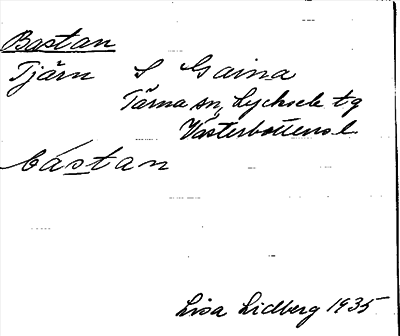 Bastan
Tjärn S Gaina
Tärna sn, Lycksele tg
Västerbottens l.
bástan
Lisa Lidberg 1935